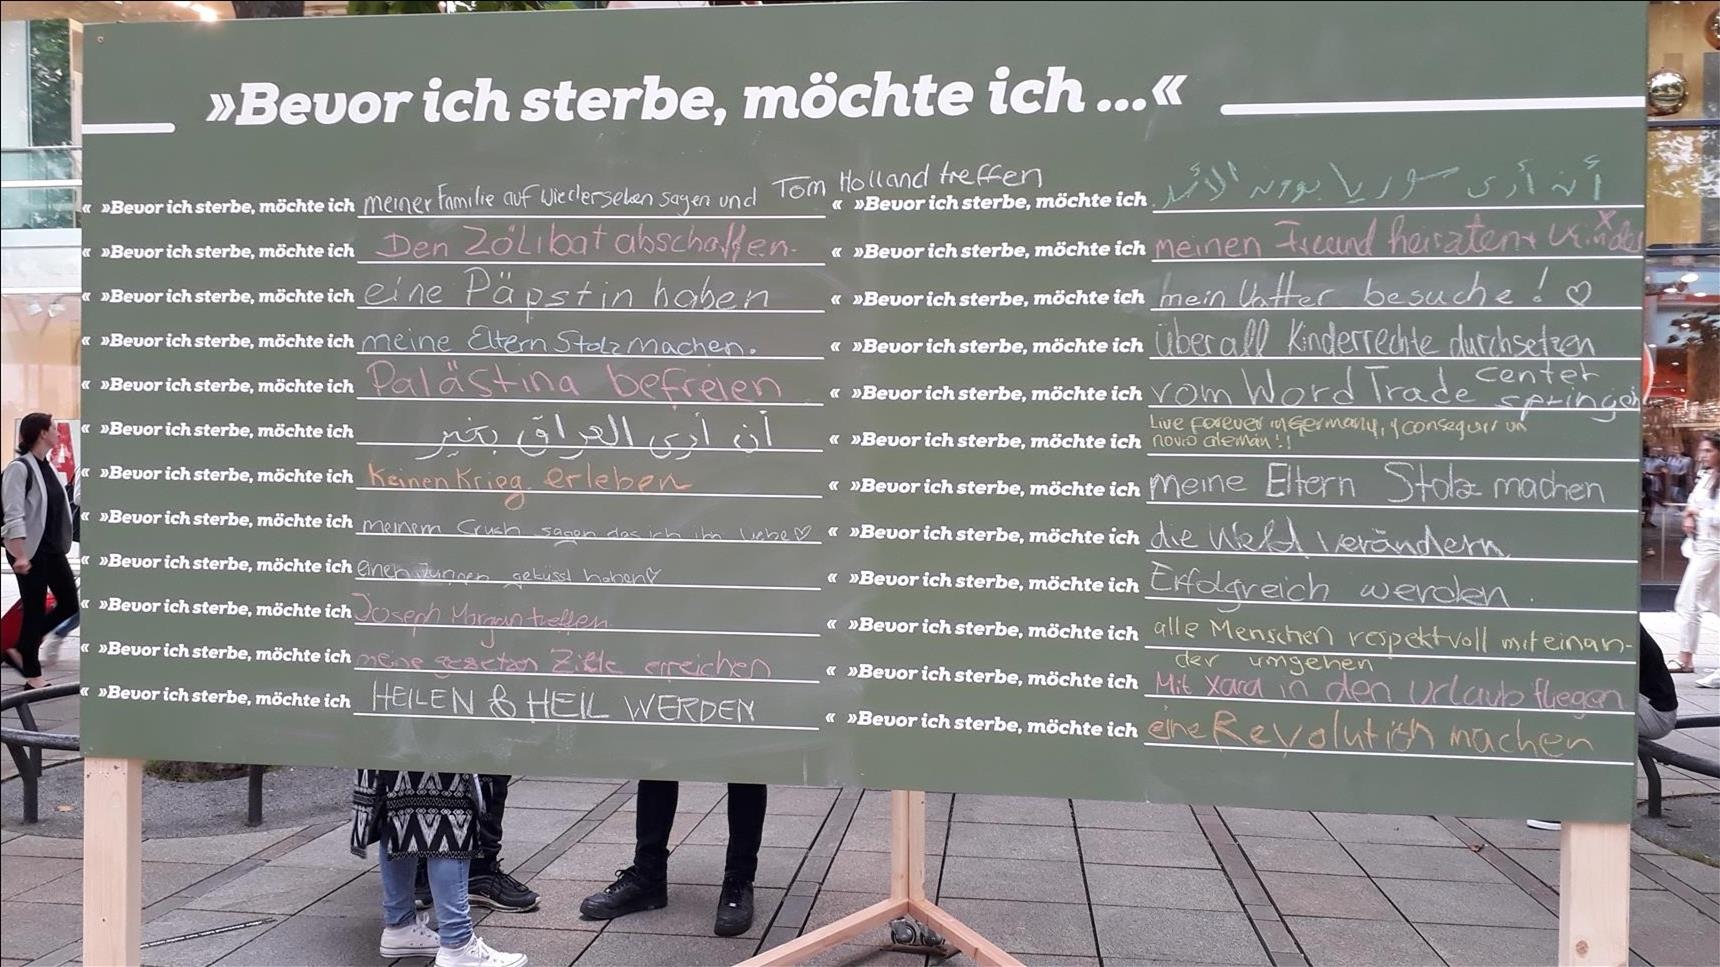 »Bevor ich sterbe, möchte ich ...«
»Bevor ich sterbe, möchte ich meiner Familie auf Wiedersehen sagen und Tom Holland treffen «
»Bevor ich sterbe, möchte ich Den Zölibat abschaffen. «
»Bevor ich sterbe, möchte ich eine Päpstin haben «
»Bevor ich sterbe, möchte ich meine Eltern Stolz machen. «
»Bevor ich sterbe, möchte ich Palästina befreien «
»Bevor ich sterbe, möchte ich أن أرى العراق بخير «
»Bevor ich sterbe, möchte ich keinen Krieg erleben «
»Bevor ich sterbe, möchte ich meinem Crush sagen das ich ihn liebe♡ «
»Bevor ich sterbe, möchte ich einen Jungen geküsst haben♡ «
»Bevor ich sterbe, möchte ich Joseph Morgan treffen «
»Bevor ich sterbe, möchte ich meine gesetzen Ziele erreichen «
»Bevor ich sterbe, möchte ich HEILEN & HEIL WERDEN «
»Bevor ich sterbe, möchte ich أن أرى سوريا بدون الأسد
»Bevor ich sterbe, möchte ich meinen Freund heiraten + Kinder
»Bevor ich sterbe, möchte ich mein Vatter besuche! ♡
»Bevor ich sterbe, möchte ich überall Kinderrechte durchsetzen
»Bevor ich sterbe, möchte ich vom Word Trade center springen
»Bevor ich sterbe, möchte ich Live forever in Germany, y conseguir un
novio alemán!!
»Bevor ich sterbe, möchte ich meine Eltern Stolz machen
»Bevor ich sterbe, möchte ich die Welt verändern
»Bevor ich sterbe, möchte ich Erfolgreich werden.
»Bevor ich sterbe, möchte ich alle Menschen respektvoll miteinan-
der umgehen
»Bevor ich sterbe, möchte ich Mit Xara in den Urlaub fliegen
»Bevor ich sterbe, möchte ich eine Revolution machen